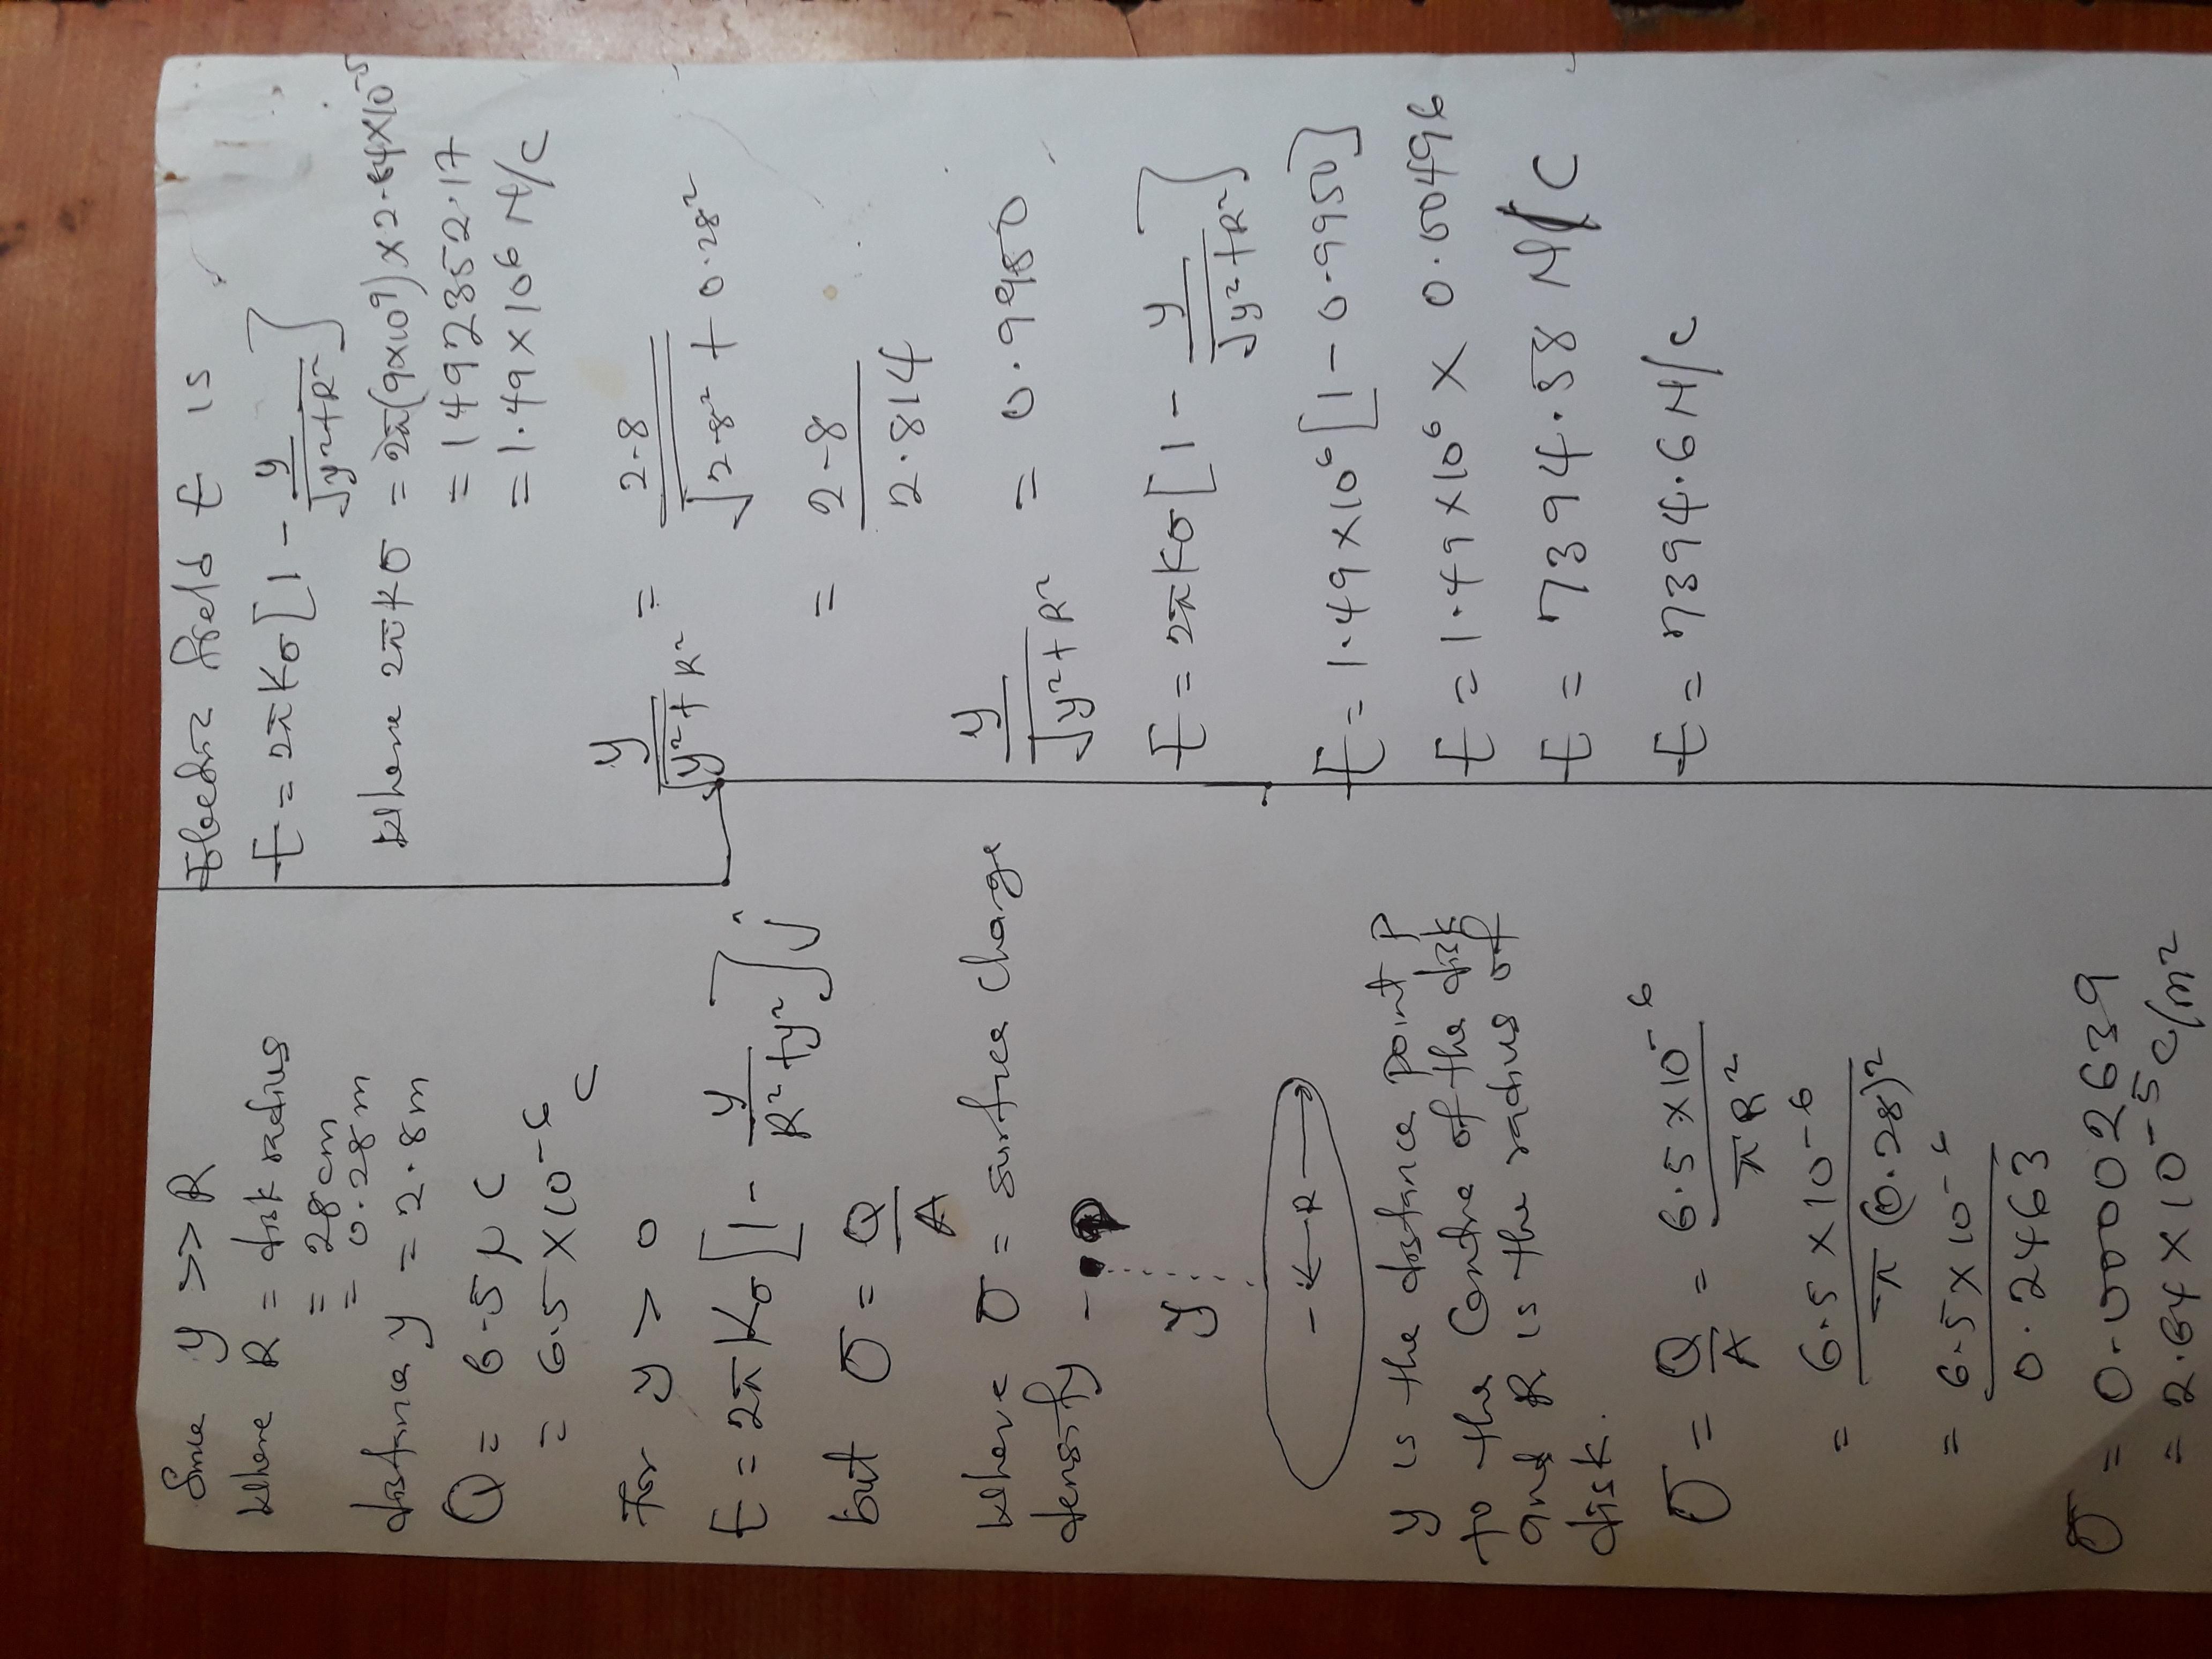 Since y >> R
Where R = disk radius
= 28cm
= 0.28m
distance y = 2.8m
Q = 6.5 μC
= 6.5 × 10⁻⁶ C
For y > 0
E = 2πKσ [1 - y/R² + y²] j
but σ = Q/A
Where σ = surface charge
density
P
y
R
y is the distance point P
to the Centre of the disk
and R is the radius of
disk.
σ = Q/A = 6.5 × 10⁻⁶/πR²
= 6.5 × 10⁻⁶/π(0.28)²
= 6.5 × 10⁻⁶/0.2463
σ = 0.00002639
= 2.64 × 10⁻⁵ C/m²
Electric field E is
E = 2πKσ [1 - y/√y²+R²]
Where 2πKσ = 2π(9×10⁹) × 2.64×10⁻⁵
= 1492352.17
= 1.49 × 10⁶ N/C
y/√y²+R² = 2.8/√2.8² + 0.28²
= 2.8/2.814
y/√y²+R² = 0.9950
E = 2πKσ [1 - y/√y²+R²]
E = 1.49 × 10⁶ [1 - 0.9950]
E = 1.49 × 10⁶ × 0.00496
E = 7394.58 N/C
E = 7394.6 N/C